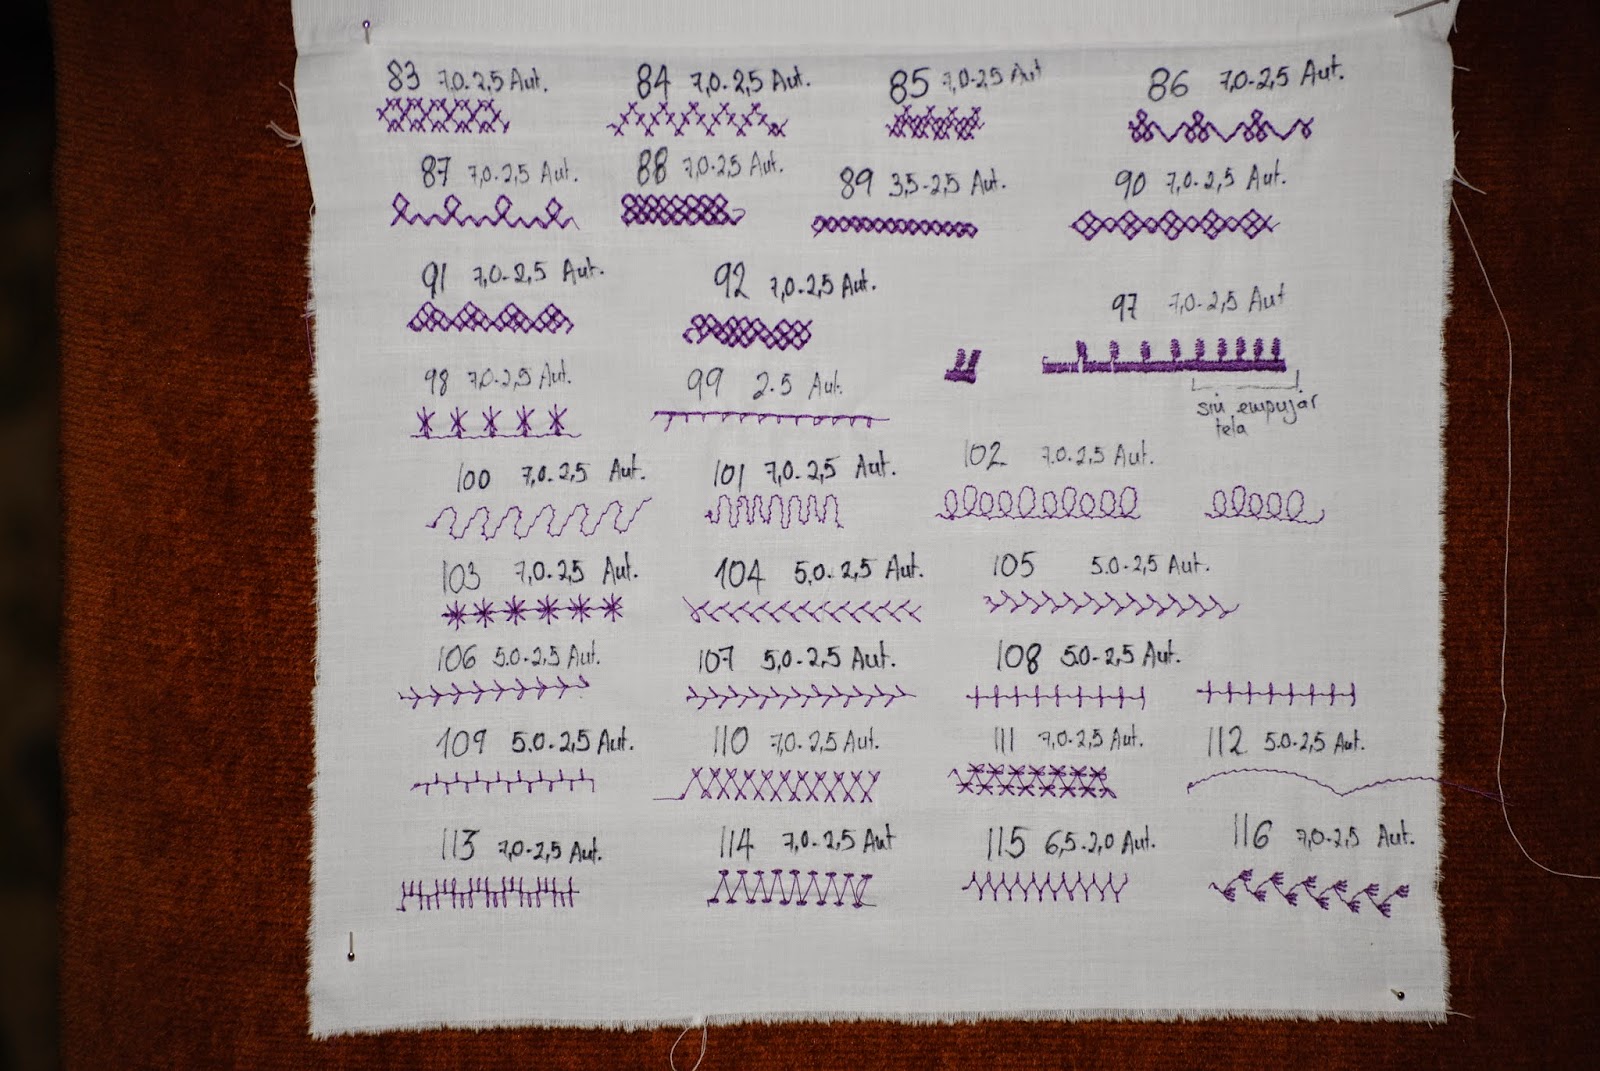 83 7,0-2,5 Aut. 84 7,0-2,5 Aut. 85 7,0-2,5 Aut 86 7,0-2,5 Aut.
87 7,0-2,5 Aut. 88 7,0-2,5 Aut. 89 3,5-2,5 Aut. 90 7,0-2,5 Aut.
91 7,0-2,5 Aut. 92 7,0-2,5 Aut. 97 7,0-2,5 Aut
98 7,0-2,5 Aut. 99 2.5 Aut. sin empujar
tela
100 7,0-2,5 Aut. 101 7,0-2,5 Aut. 102 7,0-2,5 Aut.
103 7,0-2,5 Aut. 104 5,0-2,5 Aut. 105 5.0-2,5 Aut.
106 5.0-2,5 Aut. 107 5,0-2,5 Aut. 108 5.0-2,5 Aut.
109 5.0-2,5 Aut. 110 7,0-2,5 Aut. 111 7,0-2,5 Aut. 112 5.0-2,5 Aut.
113 7,0-2,5 Aut. 114 7,0-2,5 Aut 115 6,5-2,0 Aut. 116 7,0-2,5 Aut.